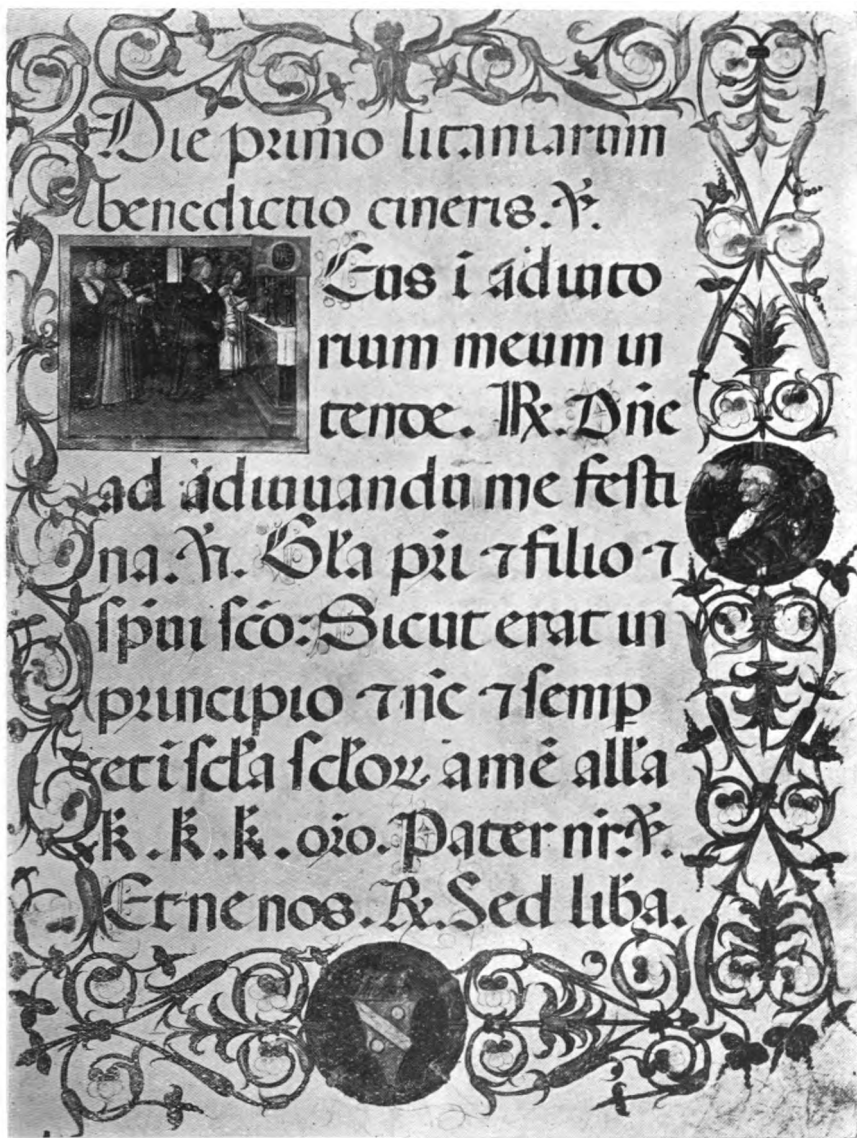 Die primo litaniarum
benedictio cineris. ℣.
Eus ī adiuto
rium meum in
tende. ℞. Dn̄e
ad adiuuandū me festi
na. ℣. Gl̄a pr̄i ⁊ filio ⁊
sp̄ui sc̄o: Sicut erat in
principio ⁊ nc̄ ⁊ semp
et ī scl̄a scl̄oꝝ amē all̄a
k̄. k̄. k̄. or̄o. Pater nr̄. ℣.
Et ne nos. ℞. Sed lib̄a.